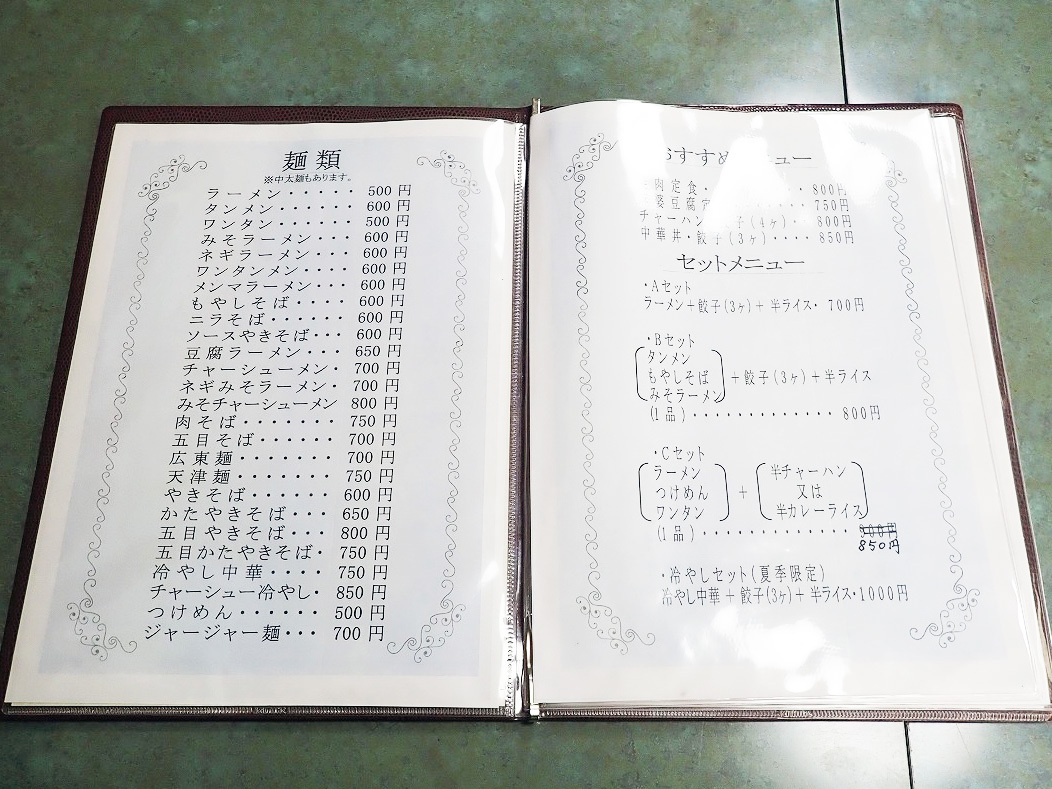 麺類
※中太麺もあります。
ラーメン・・・・・・ 500 円
タンメン・・・・・・ 600 円
ワンタン・・・・・・ 500 円
みそラーメン・・・ 600 円
ネギラーメン・・・ 600 円
ワンタンメン・・・ 600 円
メンマラーメン・・ 600 円
もやしそば・・・・ 600 円
ニラそば・・・・・・ 600 円
ソースやきそば・・・ 600 円
豆腐ラーメン・・・ 650 円
チャーシューメン・・ 700 円
ネギみそラーメン・ 700 円
みそチャーシューメン 800 円
肉そば・・・・・・・ 750 円
五目そば・・・・・・ 700 円
広東麺・・・・・・・ 700 円
天津麺・・・・・・・ 750 円
やきそば・・・・・・ 600 円
かたやきそば・・・・ 650 円
五目やきそば・・・ 800 円
五目かたやきそば・ 750 円
冷やし中華・・・・ 750 円
チャーシュー冷やし・ 850 円
つけめん・・・・・・ 500 円
ジャージャー麺・・・ 700 円
おすすめメニュー
定食・・・・・・・・ 800円
婆豆腐定・・・・・ 750円
チャーハン 子(4ヶ)・・ 800円
中華丼・餃子(3ヶ)・・・・ 850円
セットメニュー
・Aセット
ラーメン＋餃子(3ヶ)＋ 半ライス・ 700円
・Bセット
タンメン
もやしそば ＋餃子(3ヶ)＋半ライス
みそラーメン
(1品)・・・・・・・・・・・・・・ 800円
・Cセット
ラーメン 半チャーハン
つけめん ＋ 又は
ワンタン 半カレーライス
(1品)・・・・・・・・・・・・・・ 900円
850円
・冷やしセット(夏季限定)
冷やし中華＋餃子(3ヶ)＋ 半ライス・1000円